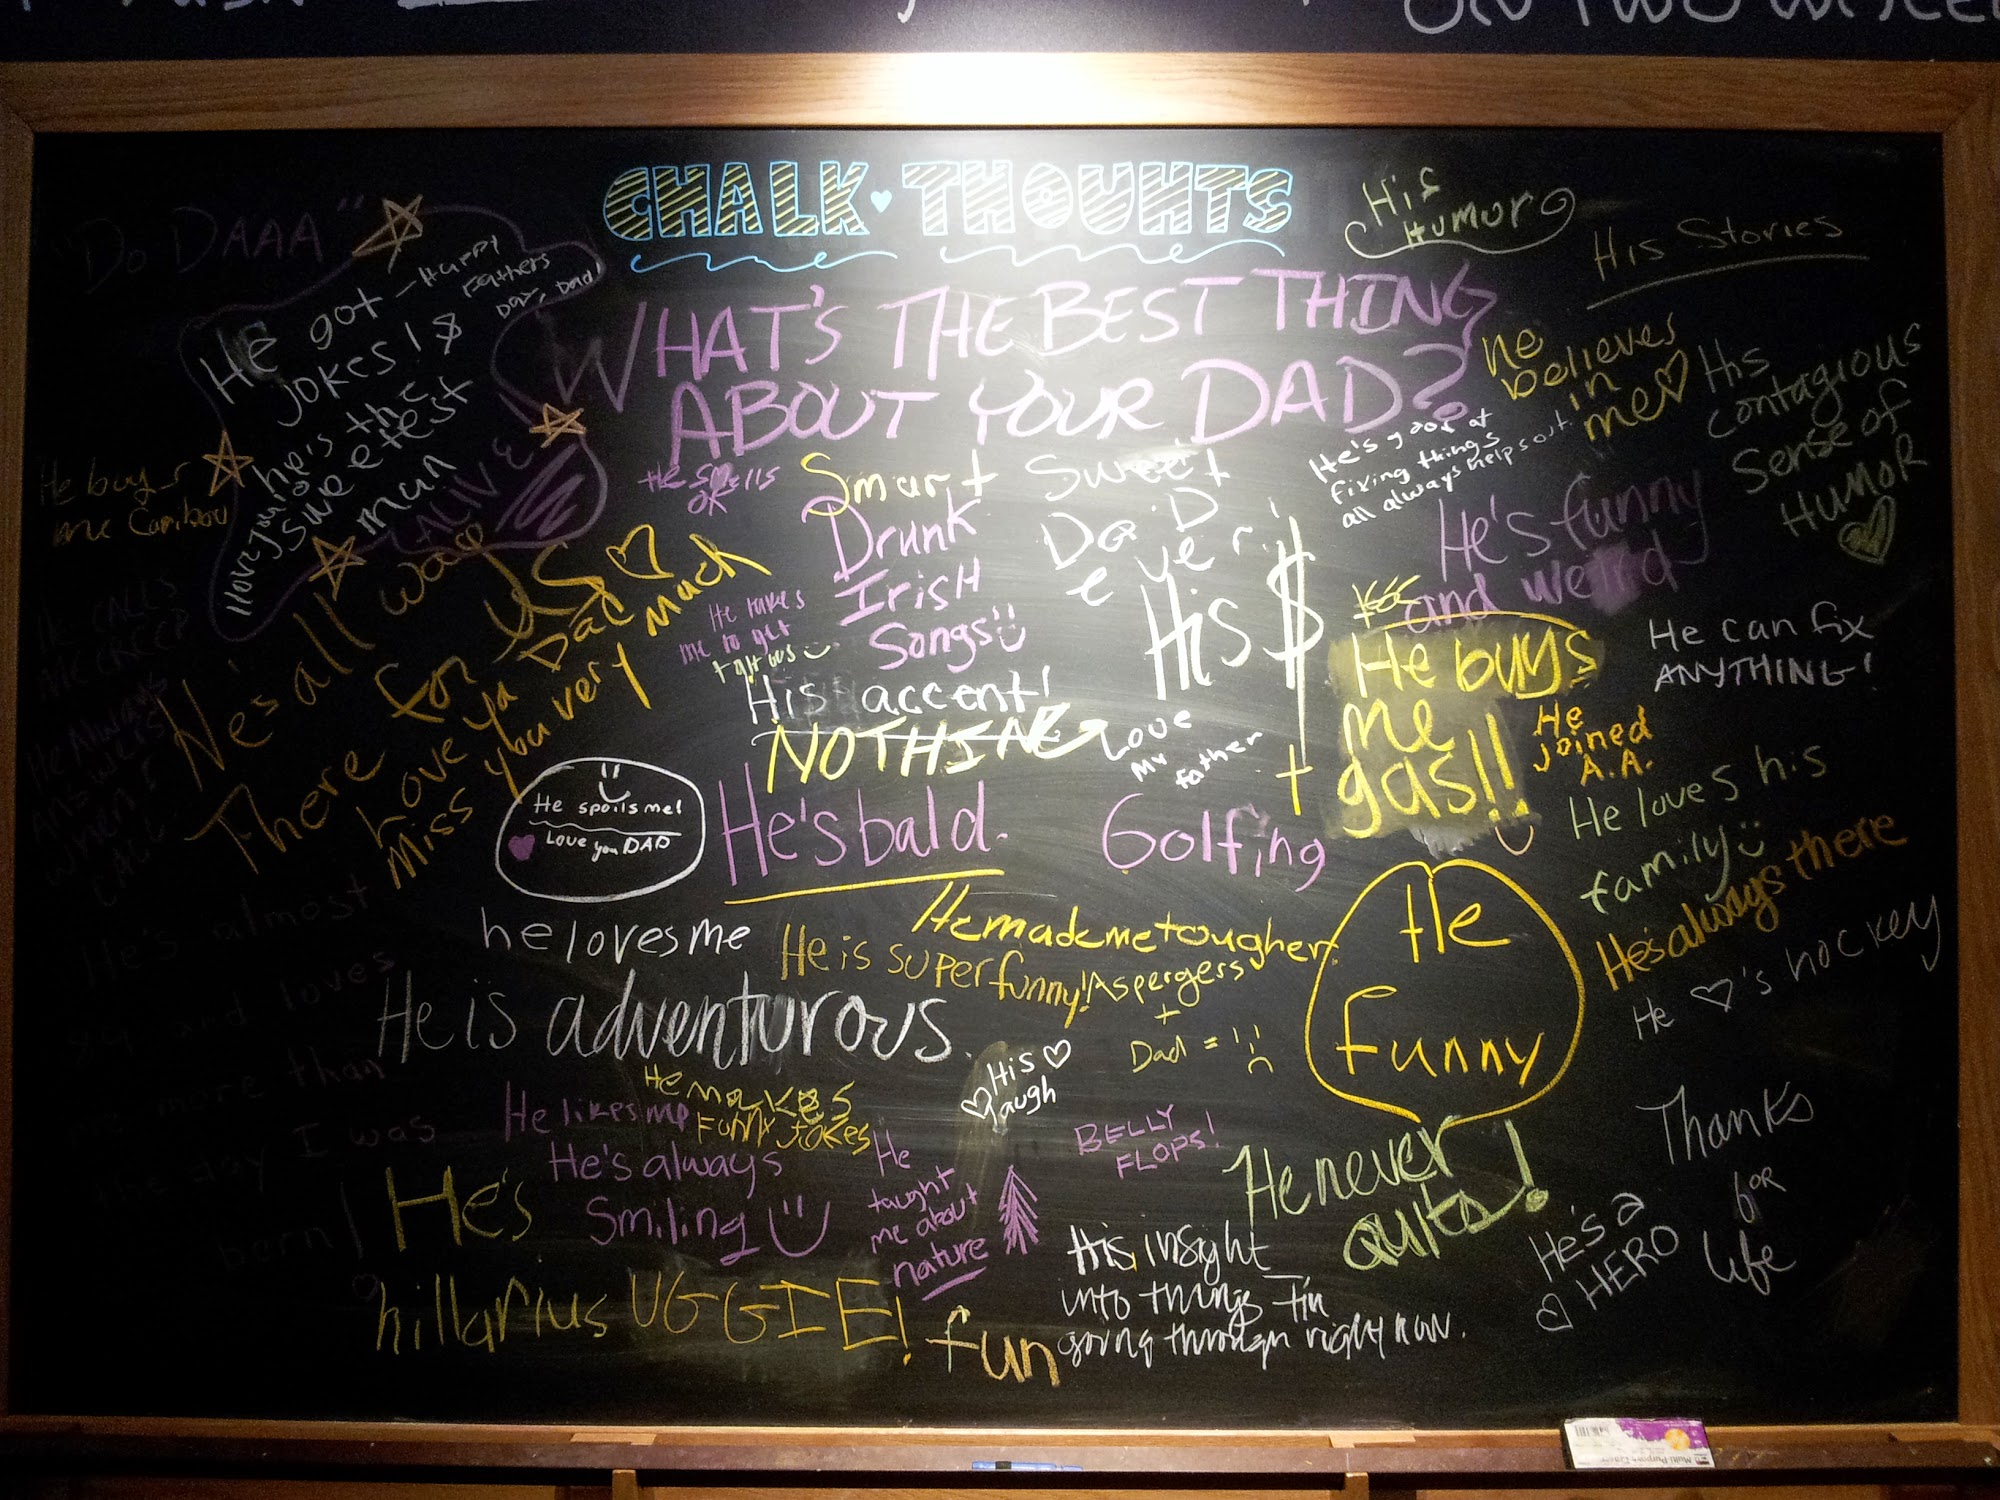 ON TWO WHEEL
CHALK THOUHTS
WHAT'S THE BEST THING
ABOUT YOUR DAD?
"DO DAAA"
He got
jokes! &
he's the
sweetest
man
- Happy
Fathers
Day, Dad!
I love you
ALIVE
He buys
me Caribou
He's all wace
There for US
Love ya Dad
Miss you very Much
HE CALLS
ME CREEP
He Always
Answers
when I
CALL
He's almost
84 and loves
me more than
the day I was
born!
He smells
OK
Smart
Drunk
Irish
Songs
He takes
me to get
tattoos
His accent!
NOTHING
Sweet
DaD
ever!
His $
+
Love
My
father
His
Humor
His Stories
He
believes
in
me
His
contagious
Sense of
HUMOR
He's good at
fixing things
all always helps out.
He's funny
and weird
He buys
me
gas!!
He can fix
ANYTHING!
He
joined
A.A.
He loves his
family
He's always there
He ♡'s hockey
He spoils me!
Love you DAD
He's bald.
Golfing
he loves me
He made me tougher
He is super funny!
Aspergers
+
Dad =
He is adventurous.
He
funny
His
laugh
He likes me
He makes
Funny jokes
He's always
Smiling
He
taught
me about
nature
BELLY
FLOPS!
He never
quits!
He's
hillarius
UGGIE!
fun
His insight
into things I'm
going through right now.
He's a
HERO
Thanks
for
life
Multi-Purpose Eraser